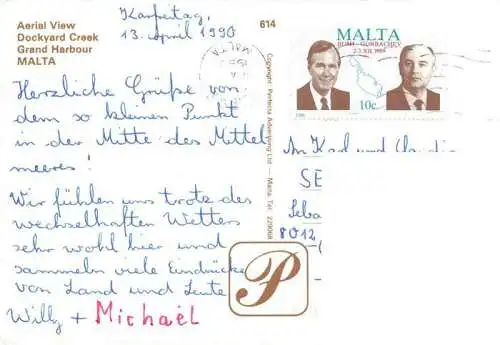 Aerial View
Dockyard Creek
Grand Harbour
MALTA
Karfreitag,
13. April 1990
Herzliche Grüße von
dem so kleinen Punkt
in der Mitte des Mittel
meeres!
Wir fühlen uns trotz des
wechselhaften Wetters
sehr wohl hier und
sammeln viele Eindrücke
von Land und Leute
Willy + Michael
614
Copyright Perfecta Advertising Ltd — Malta. Tel:
P
MALTA
BUSH - GORBACHEV
2-3.XII.1989
10c
An Karl und
SE
Seba
8012